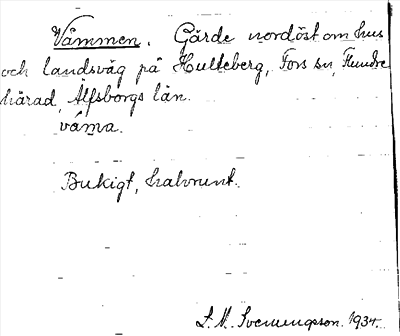 Våmmen. Gärde nordöst om hus
och landsväg på Hulteberg, Fors sn, Flundre
härad, Älfsborgs län.
våma.
Bukigt, halvrunt.
L. N. Svenungsson. 1934.